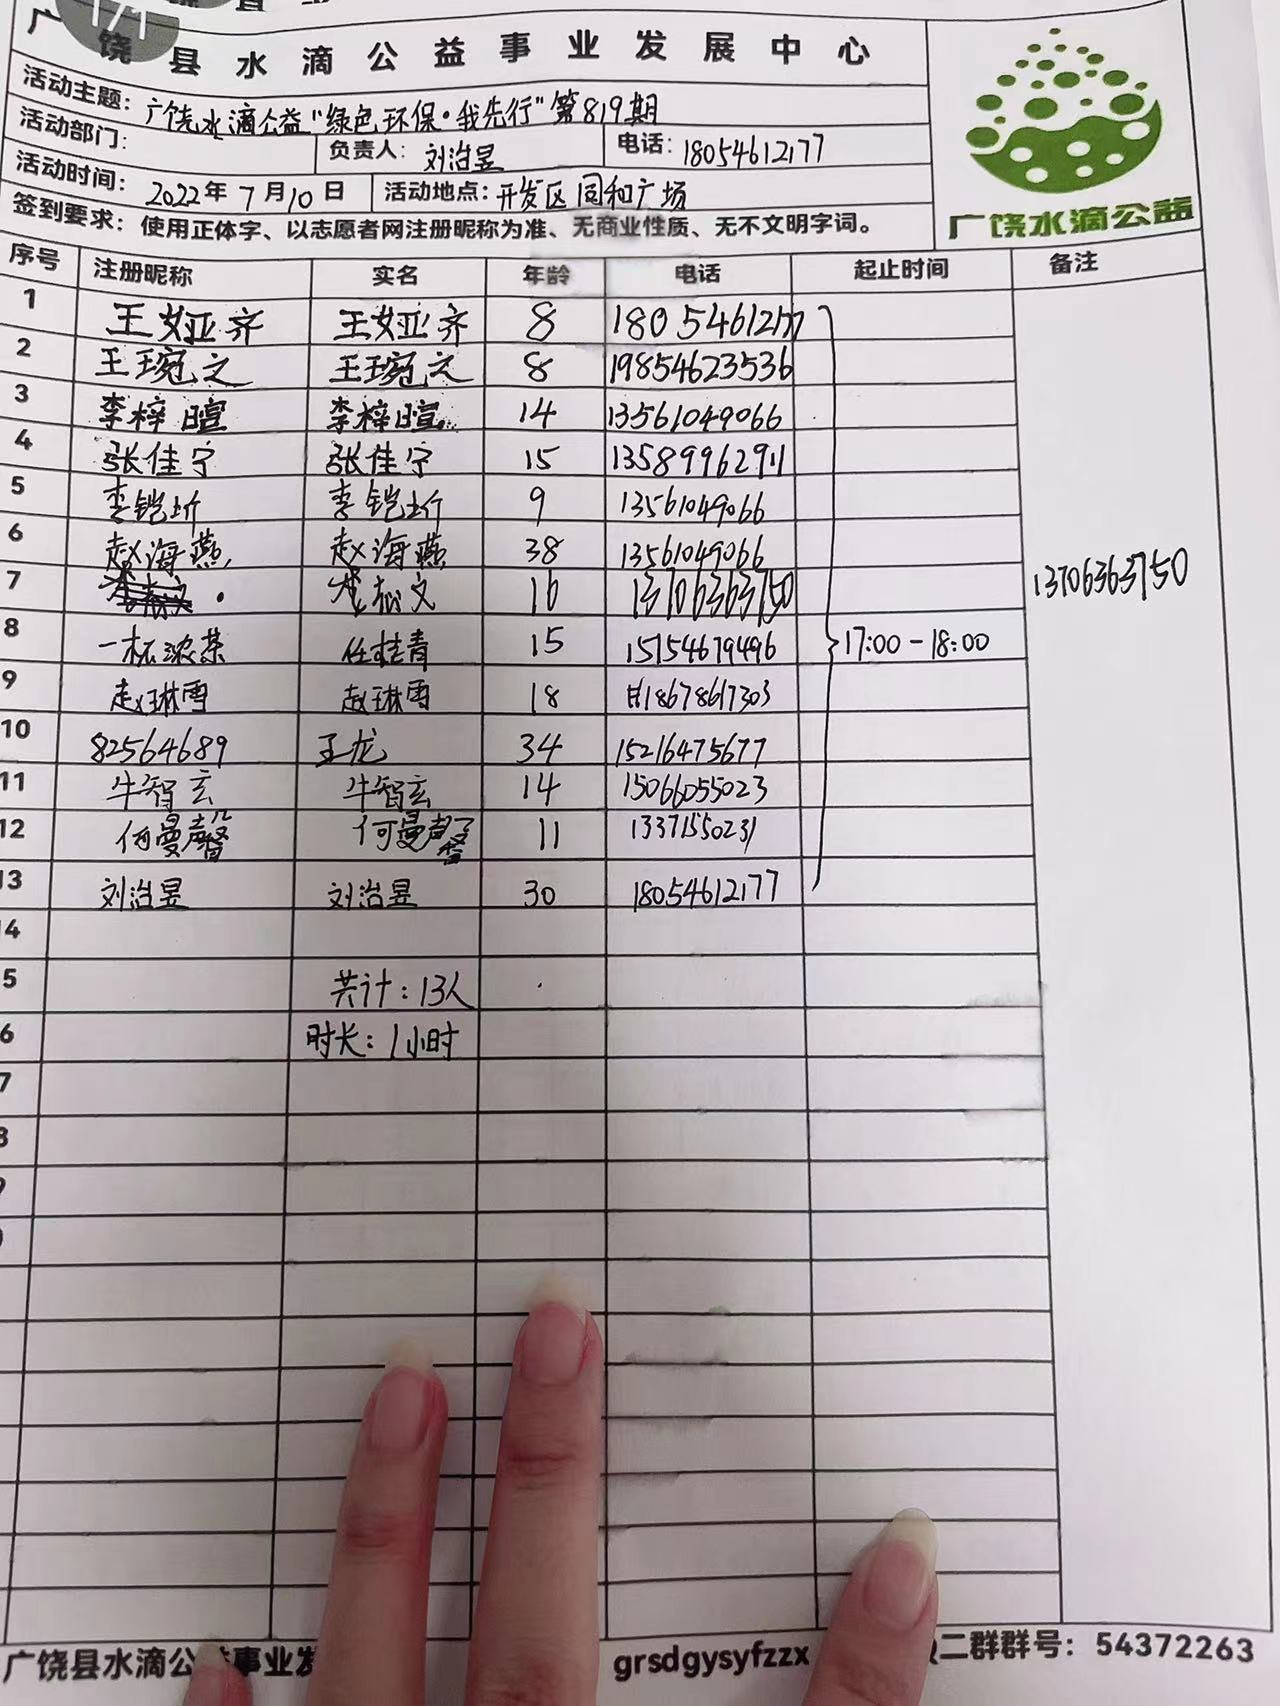 广饶县水滴公益事业发展中心
活动主题：广饶水滴公益“绿色环保·我先行”第819期
活动部门： 负责人：刘治昱 电话：18054612177
活动时间：2022年7月10日 活动地点：开发区同和广场
签到要求：使用正体字、以志愿者网注册昵称为准、无商业性质、无不文明字词。
广饶水滴公益
序号 注册昵称 实名 年龄 电话 起止时间 备注
1 王姲齐 王姲齐 8 18054612177
2 王琬之 王琬之 8 19854623536
3 李梓暄 李梓暄 14 13561049066
4 张佳宁 张佳宁 15 13589962911
5 李铠圻 李铠圻 9 13561049066
6 赵海燕 赵海燕 38 13561049066
7 松文 16 13706363750 13706363750
8 一杯浓茶 任桂青 15 15154679496 17:00-18:00
9 赵琳雪 赵琳雪 18 18678617303
10 82564689 王龙 34 15216475677
11 牛智玄 牛智玄 14 15066055023
12 何曼馨 何曼馨 11 13371550231
13 刘治昱 刘治昱 30 18054612177
14
5 共计：13人
6 时长：1小时
7
8
9
广饶县水滴公益事业发 grsdgysyfzzx 二群群号：54372263